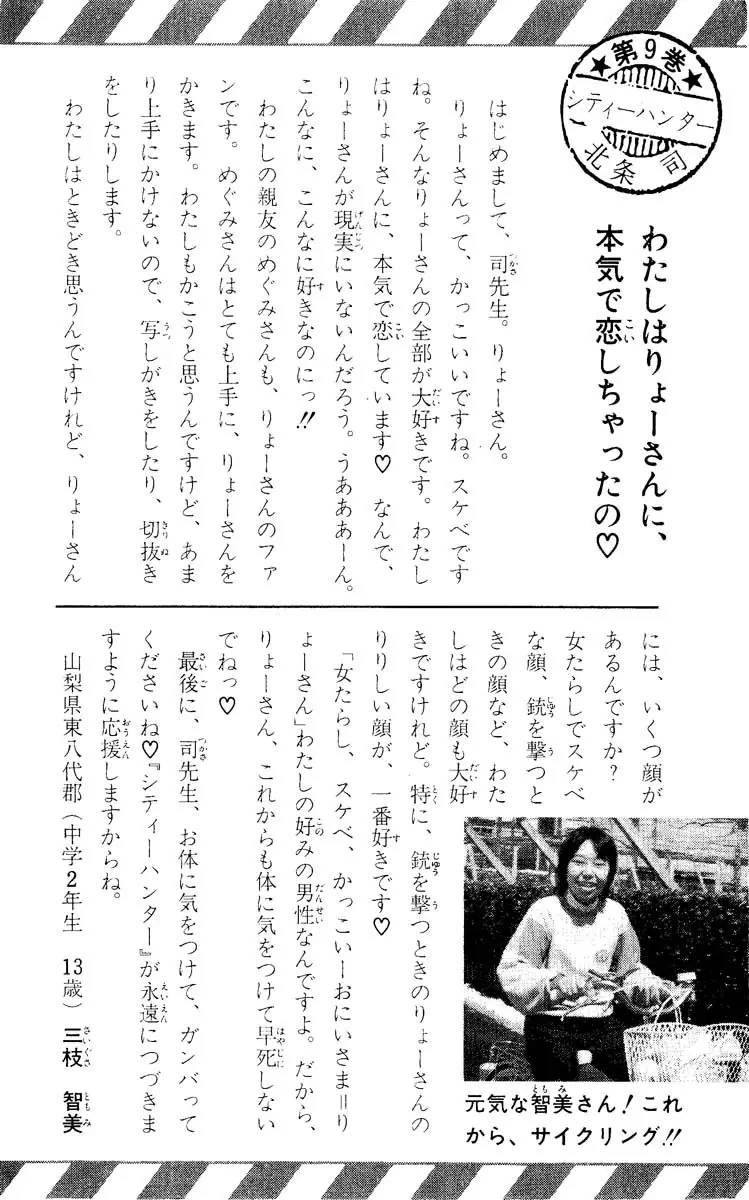 ★第9巻★
シティーハンター
北条 司
わたしはりょーさんに、
本気で恋しちゃったの♡
はじめまして、司先生。りょーさん。
りょーさんって、かっこいいですね。スケベです
ね。そんなりょーさんの全部が大好きです。わたし
はりょーさんに、本気で恋しています♡ なんで、
りょーさんが現実にいないんだろう。うあああーん。
こんなに、こんなに好きなのにっ!!
わたしの親友のめぐみさんも、りょーさんのファ
ンです。めぐみさんはとても上手に、りょーさんを
かきます。わたしもかこうと思うんですけど、あま
り上手にかけないので、写しがきをしたり、切抜き
をしたりします。
わたしはときどき思うんですけれど、りょーさん
には、いくつ顔が
あるんですか?
女たらしでスケベ
な顔、銃を撃つと
きの顔など、わた
しはどの顔も大好
きですけれど。特に、銃を撃つときのりょーさんの
りりしい顔が、一番好きです♡
「女たらし、スケベ、かっこいーおにいさま=り
ょーさん」わたしの好みの男性なんですよ。だから、
りょーさん、これからも体に気をつけて早死しない
でねっ♡
最後に、司先生、お体に気をつけて、ガンバって
くださいね♡『シティーハンター』が永遠につづきま
すように応援しますからね。
山梨県東八代郡(中学2年生 13歳)三枝 智美
元気な智美さん!これ
から、サイクリング!!